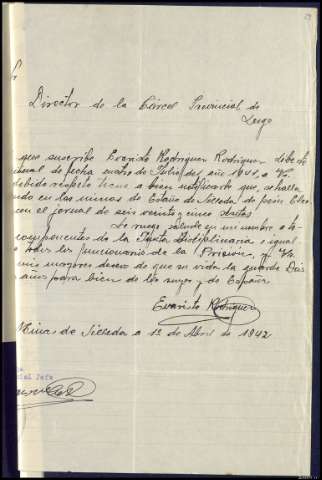 Director de la Cárcel Provincial de
Lugo
que suscribe Evaristo Rodriguez Rodriguez
de fecha cuatro de Julio del año 1941, a Vd.
debido respeto tiene a bien notificarle que, se halla
en las minas de Estaño de Silleda de peón
con el jornal de seis veinte y cinco
Le ruego salude en mi nombre a
componentes de la Junta Disciplinaria e igual
a todos los funcionarios de la Prision, y Vd.
mis mayores deseos de que su vida la guarde Dios
años para bien de los suyos y de España
Evaristo Rodriguez
Minas de Silleda a 12 de Abril de 1942